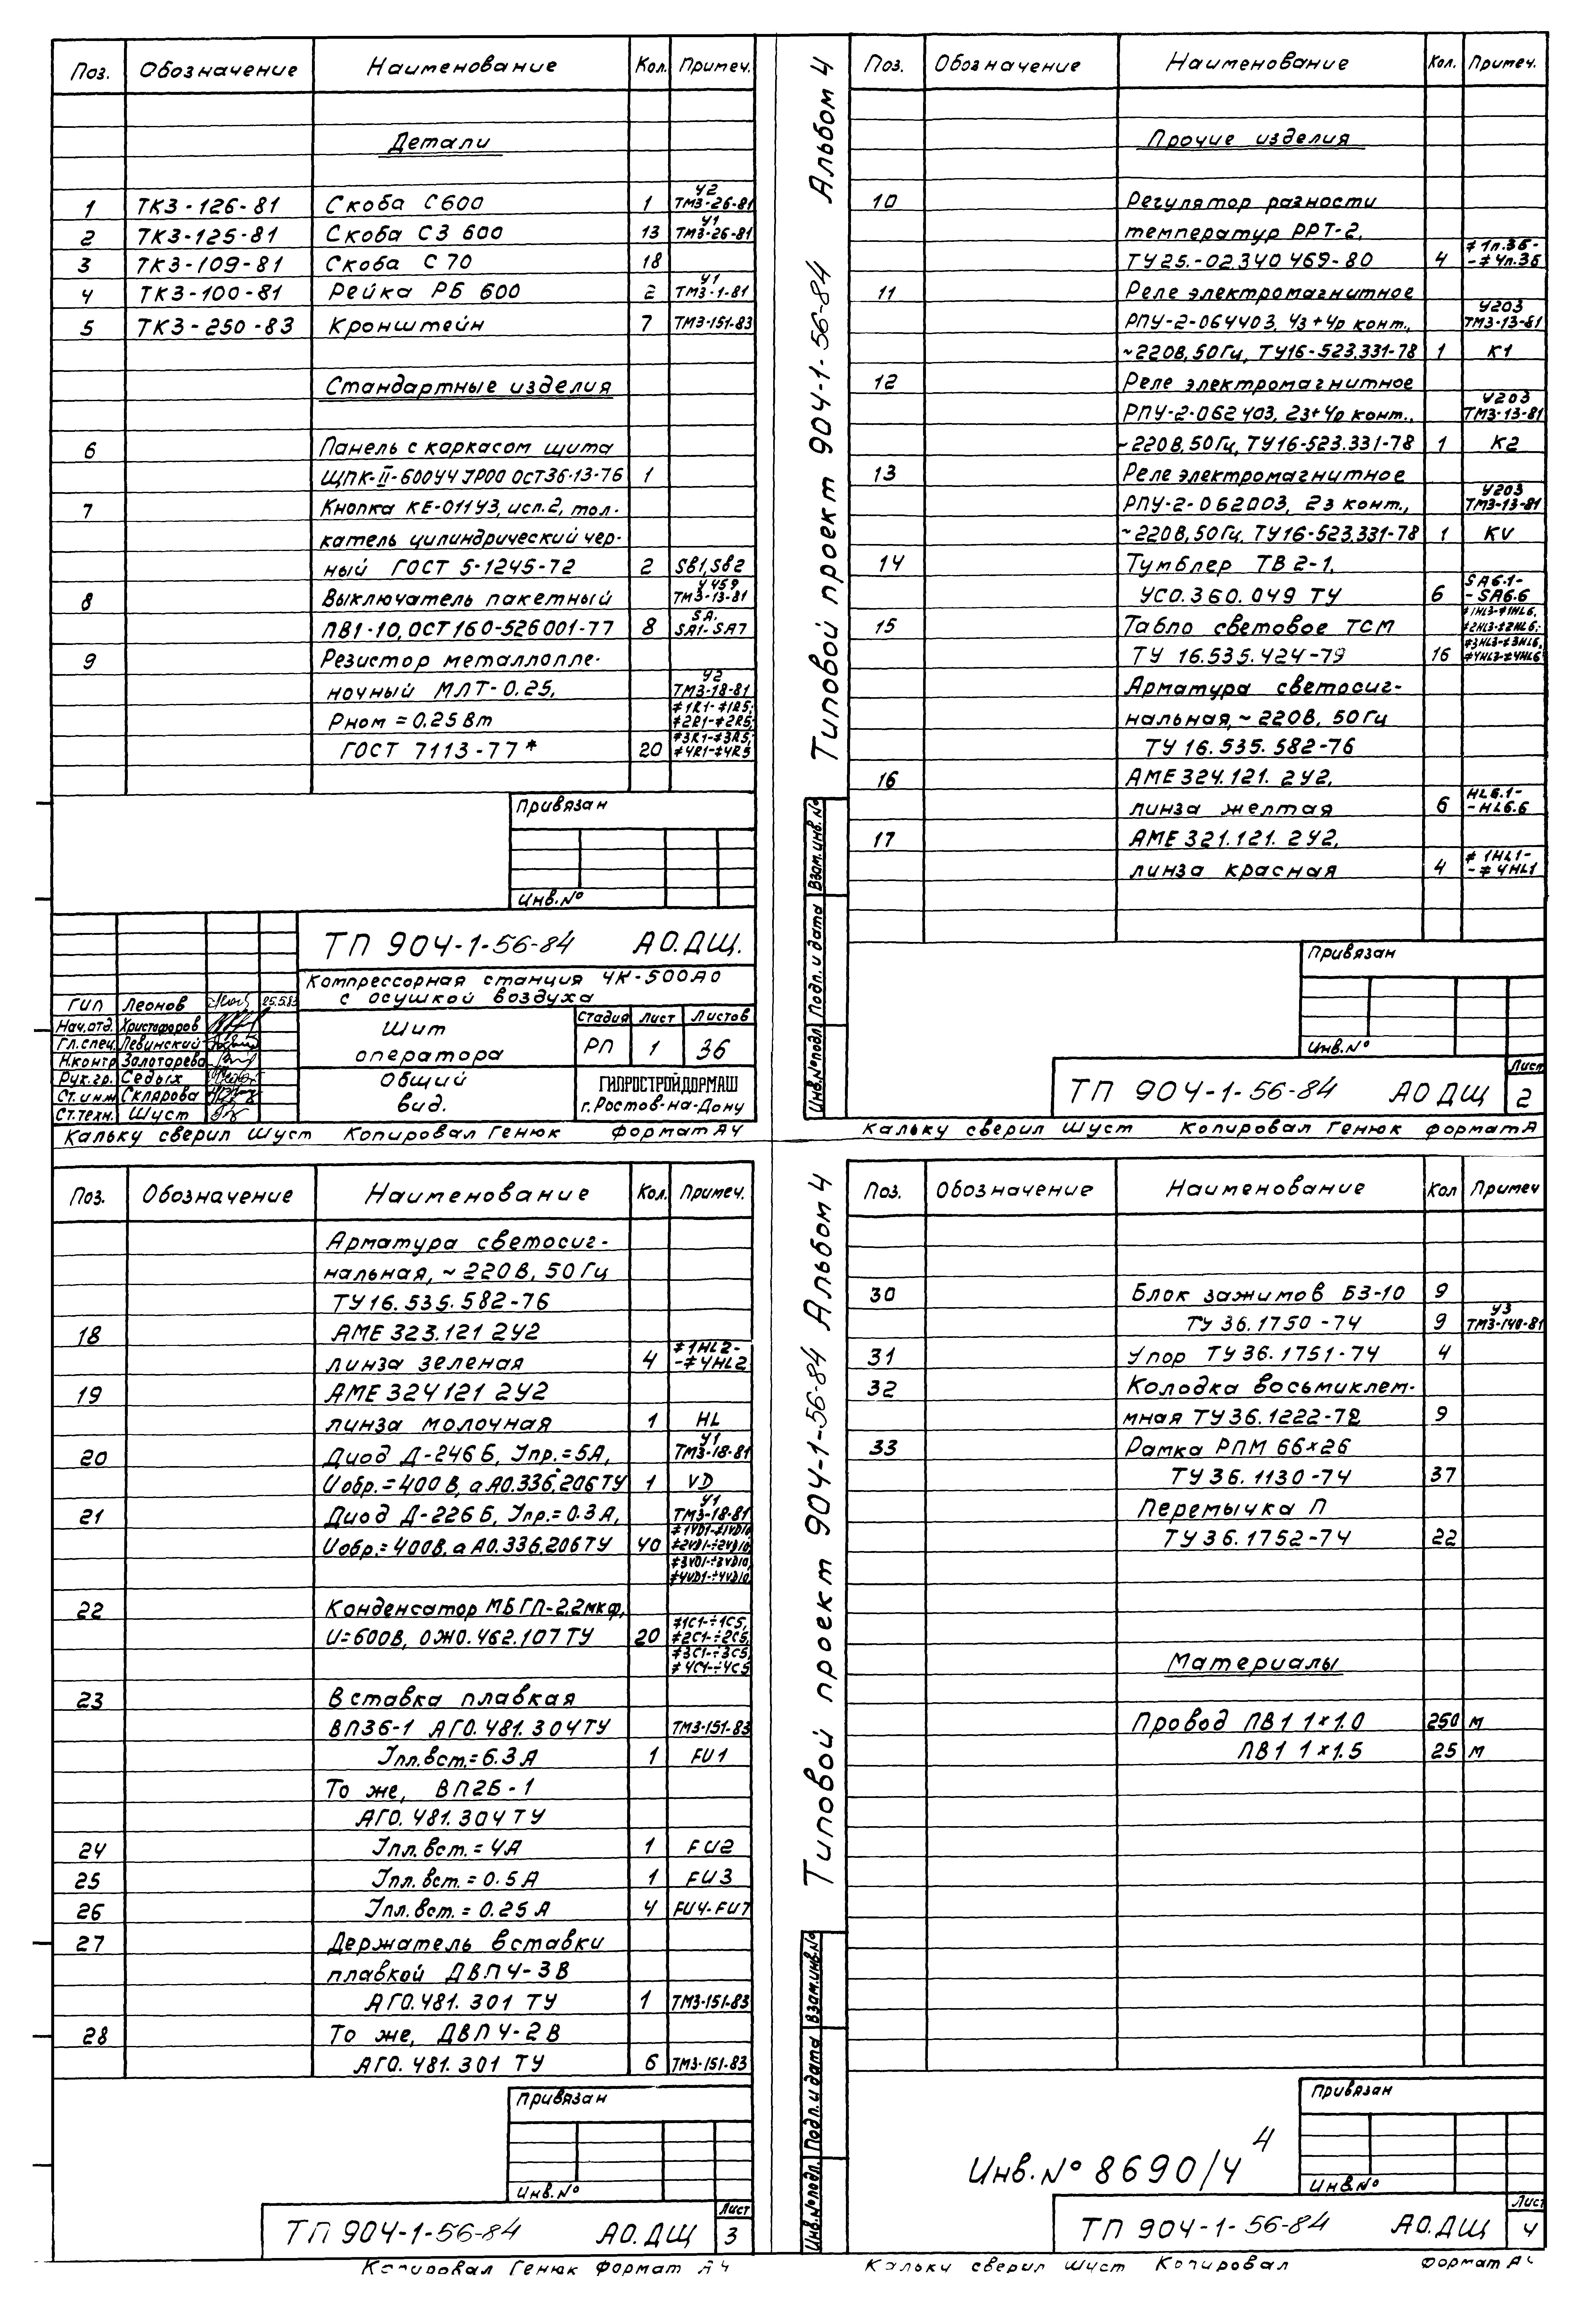 Поз. Обозначение Наименование Кол. Примеч.
Детали
У2
1 ТК3-126-81 Скоба С600 1 ТМ3-26-81
У1
2 ТК3-125-81 Скоба С3 600 13 ТМ3-26-81
3 ТК3-109-81 Скоба С70 18
У1
4 ТК3-100-81 Рейка РБ 600 2 ТМ3-1-81
5 ТК3-250-83 Кронштейн 7 ТМ3-151-83
Стандартные изделия
6 Панель с каркасом щита
ЩПК-II-600У4 JP00 ОСТ36-13-76 1
7 Кнопка КЕ-011У3, исп.2, тол-
катель цилиндрический чер-
ный ГОСТ 5-1245-72 2 SB1, SB2
У459
8 Выключатель пакетный ТМ3-13-81
SA.
ПВ1-10, ОСТ 160-526001-77 8 SA1-SA7
9 Резистор металлопле-
У2
ночный МЛТ-0.25, ТМ3-18-81
#1R1-#1R5,
Рном = 0.25 Вт #2R1-#2R5,
#3R1-#3R5,
ГОСТ 7113-77* 20 #4R1-#4R5
Привязан
Инв.№
ТП 904-1-56-84 АО.ДЩ.
Компрессорная станция 4К-500АО
с осушкой воздуха
ГИП Леонов 25.5.83
Нач.отд. Христофоров
Гл.спец. Левинский
Н.контр Золотарева
Рук.гр. Седых
Ст.инж Склярова
Ст.техн. Шуст
Щит
оператора
Стадия Лист Листов
РП 1 36
Общий
вид.
ГИПРОСТРОЙДОРМАШ
г.Ростов-на-Дону
Кальку сверил Шуст Копировал Генюк Формат А4
Типовой проект 904-1-56-84 Альбом 4
Поз. Обозначение Наименование Кол. Примеч.
Прочие изделия
10 Регулятор разности
температур РРТ-2,
#1п.3б-
ТУ25.-02.340 469-80 4 -#4п.3б
11 Реле электромагнитное
У203
РПУ-2-064403, 4з+4р конт., ТМ3-13-81
~220В, 50Гц, ТУ16-523.331-78 1 К1
12 Реле электромагнитное
У203
РПУ-2-062403, 2з+4р конт., ТМ3-13-81
~220В, 50Гц, ТУ16-523.331-78 1 К2
13 Реле электромагнитное
У203
РПУ-2-062003, 2з конт., ТМ3-13-81
~220В, 50Гц, ТУ16-523.331-78 1 KV
14 Тумблер ТВ2-1,
SA6.1-
УСО.360.049 ТУ 6 -SA6.6
#1HL3-#1HL6,
15 Табло световое ТСМ #2HL3-#2HL6,
#3HL3-#3HL6,
ТУ 16.535.424-79 16 #4HL3-#4HL6
Арматура светосиг-
нальная, ~220В, 50Гц
ТУ 16.535.582-76
16 АМЕ 324.121. 2У2,
HL6.1-
линза желтая 6 -HL6.6
17 АМЕ 321.121. 2У2,
#1HL1-
линза красная 4 -#4HL1
Взам.инв.№
Подп. и дата
Инв.№подл
Привязан
Инв.№
ТП 904-1-56-84 АО ДЩ Лист 2
Кальку сверил Шуст Копировал Генюк Формат А
Поз. Обозначение Наименование Кол. Примеч.
Арматура светосиг-
нальная, ~220В, 50Гц
ТУ16.535.582-76
18 АМЕ 323.121 2У2
#1HL2-
линза зеленая 4 -#4HL2
19 АМЕ 324121 2У2
линза молочная 1 HL
У1
20 Диод Д-246Б, Jпр.=5А, ТМ3-18-81
Uобр.=400В, аА0.336.206ТУ 1 VD
У1
21 Диод Д-226Б, Jпр.=0.3А, ТМ3-18-81
#1VD1-#1VD10
Uобр.=400В, аА0.336.206ТУ 40 #2VD1-÷2VD10,
#3VD1-÷3VD10,
#4VD1-÷4VD10,
22 Конденсатор МБГП-2.2мкф,
#1C1-÷1C5,
U=600В, ОЖ0.462.107 ТУ 20 #2C1-÷2C5,
#3C1-÷3C5,
#4C1-÷4C5
23 Вставка плавкая
ВП3б-1 АГО.481.304ТУ ТМ3-151-83
Jпл.вст.=6.3А 1 FU1
То же, ВП2Б-1
АГО.481.304 ТУ
24 Jпл.вст.=4А 1 FU2
25 Jпл.вст.=0.5А 1 FU3
26 Jпл.вст.=0.25А 4 FU4-FU7
27 Держатель вставки
плавкой ДВП4-3В
АГО.481.301 ТУ 1 ТМ3-151-83
28 То же, ДВП4-2В
АГО.481.301 ТУ 6 ТМ3-151-83
Привязан
Инв.№
ТП 904-1-56-84 АО.ДЩ Лист 3
Копировал Генюк Формат А4
Типовой проект 904-1-56-84 Альбом 4
Поз. Обозначение Наименование Кол Примеч
30 Блок зажимов БЗ-10 9
У3
ТУ 36.1750-74 9 ТМ3-140-81
31 Упор ТУ36.1751-74 4
32 Колодка восьмиклем-
мная ТУ36.1222-72 9
33 Рамка РПМ 66×26
ТУ36.1130-74 37
Перемычка П
ТУ36.1752-74 22
Материалы
Провод ПВ1 1×1.0 250 м
ПВ1 1×1.5 25 м
Взам.инв.№
Подп. и дата
Инв.№подл.
Привязан
Инв.№
Инв.№ 8690/4 4
ТП 904-1-56-84 АО.ДЩ Лист 4
Кальку сверил Шуст Копировал Формат А4